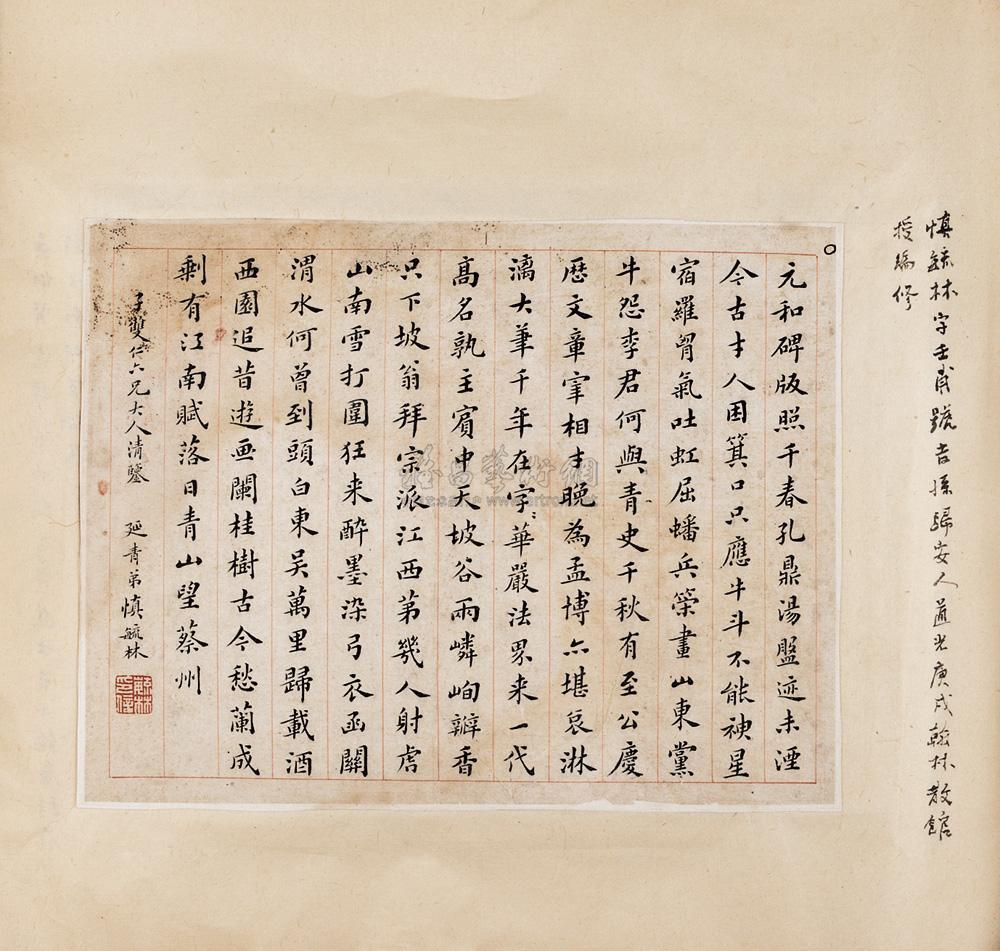 慎毓林字壬甫號吉孫歸安人道光庚戌翰林散館
授編修
元和碑版照千春孔鼎湯盤迹未湮
今古才人困箕口只應牛斗不能神星
宿羅胷氣吐虹屈蟠兵筞畫山東黨
牛怨李君何與青史千秋有至公慶
歷文章宰相才晚為孟博亦堪哀淋
漓大筆千年在字〻華嚴法界来一代
高名孰主賓中天坡谷兩嶙峋瓣香
只下坡翁拜宗派江西第幾人射虎
山南雪打圍狂来醉墨染弓衣函關
渭水何曾到頭白東吴萬里歸載酒
西園追昔遊畫闌桂樹古今愁蘭成
剩有江南賦落日青山望蔡州
子雙仁六兄大人清鑒
延青弟慎毓林